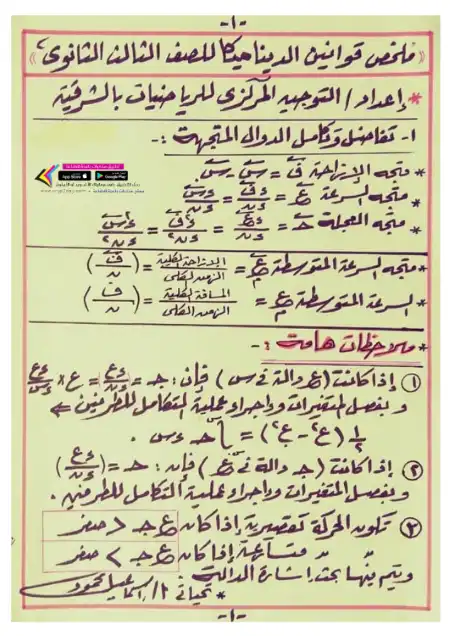 -١-
« ملخص قوانين الديناميكا للصف الثالث الثانوى »
* إعداد / التوجيه المركزى للرياضيات بالشرقية
١- تفاضل وتكامل الدوال المتجهة :-
* متجه الإزاحة ف = س - س٠
* متجه السرعة ع = ءف/ءن = ءس/ءن
* متجه العجلة حـ = ءع/ءن = ء٢ف/ءن٢ = ء٢س/ءن٢
* متجه السرعة المتوسطة ع م = الإزاحة الكلية/الزمن الكلى = (ف/ن)
* السرعة المتوسطة ع م = المسافة الكلية/الزمن الكلى = (ف/ن)
* ملاحظات هامة :-
١ إذا كانت (ع دالة فى س) فإن : جـ = ءع/ءن = ع × ءع/ءس
و بفصل المتغيرات وإجراء عملية التكامل للطرفين ⇐
١/٢ (ع٢ - ع٠٢) = ∫ حـ ءس .
٢ إذا كانت (جـ دالة فى ع) فإن : حـ = (ءع/ءن)
وبفصل المتغيرات وإجراء عملية التكامل للطرفين .
٣ تكون الحركة تقصيرية إذا كان ع جـ < صفر
" " متسارعة إذا كان ع جـ > صفر
ويتم منها بحث إشارة الدالة
* تحياتى / أ. إسماعيل محمود
-١-